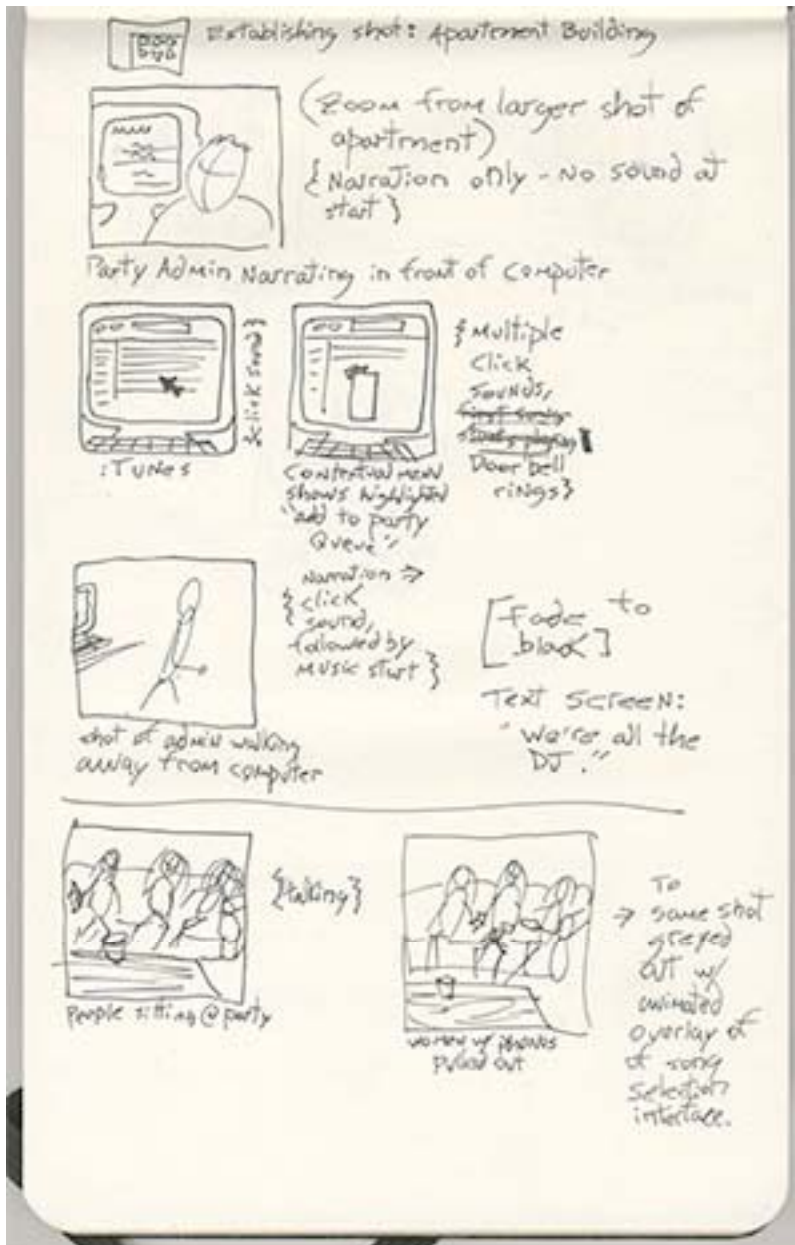 Establishing shot: Apartment Building
(Zoom from larger shot of
apartment)
{Narration only - No sound at
start}
Party Admin Narrating in front of computer
{click sound}
iTunes
Contextual menu
shows highlighted
"add to party
Queue"
{Multiple
Click
sounds,
first song
starts playing
Door bell
rings}
Narration →
{click
sound,
followed by
Music start}
shot of admin walking
away from computer
[Fade to
black]
Text Screen:
"we're all the
DJ."
{talking}
People sitting @ party
women w/ phones
pulled out
To
→ same shot
greyed
out w/
animated
overlay of
of song
selection
interface.